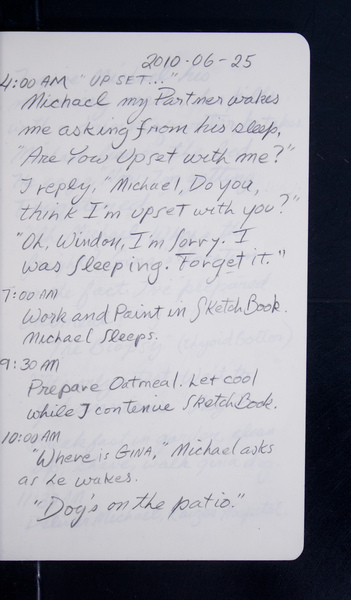 2010-06-25
4:00 AM "UPSET..."
Michael my Partner wakes
me asking from his sleep,
"Are You Upset with me?"
I reply, "Michael, Do you,
think I'm upset with you?"
"Oh, Windoll, I'm Sorry. I
was Sleeping. Forget it."
7:00 AM
Work and Paint in SketchBook.
Michael Sleeps.
9:30 AM
Prepare Oatmeal. Let cool
while I contenue SketchBook.
10:00 AM
"Where is GINA," Michael asks
as he wakes.
"Dog's on the patio."